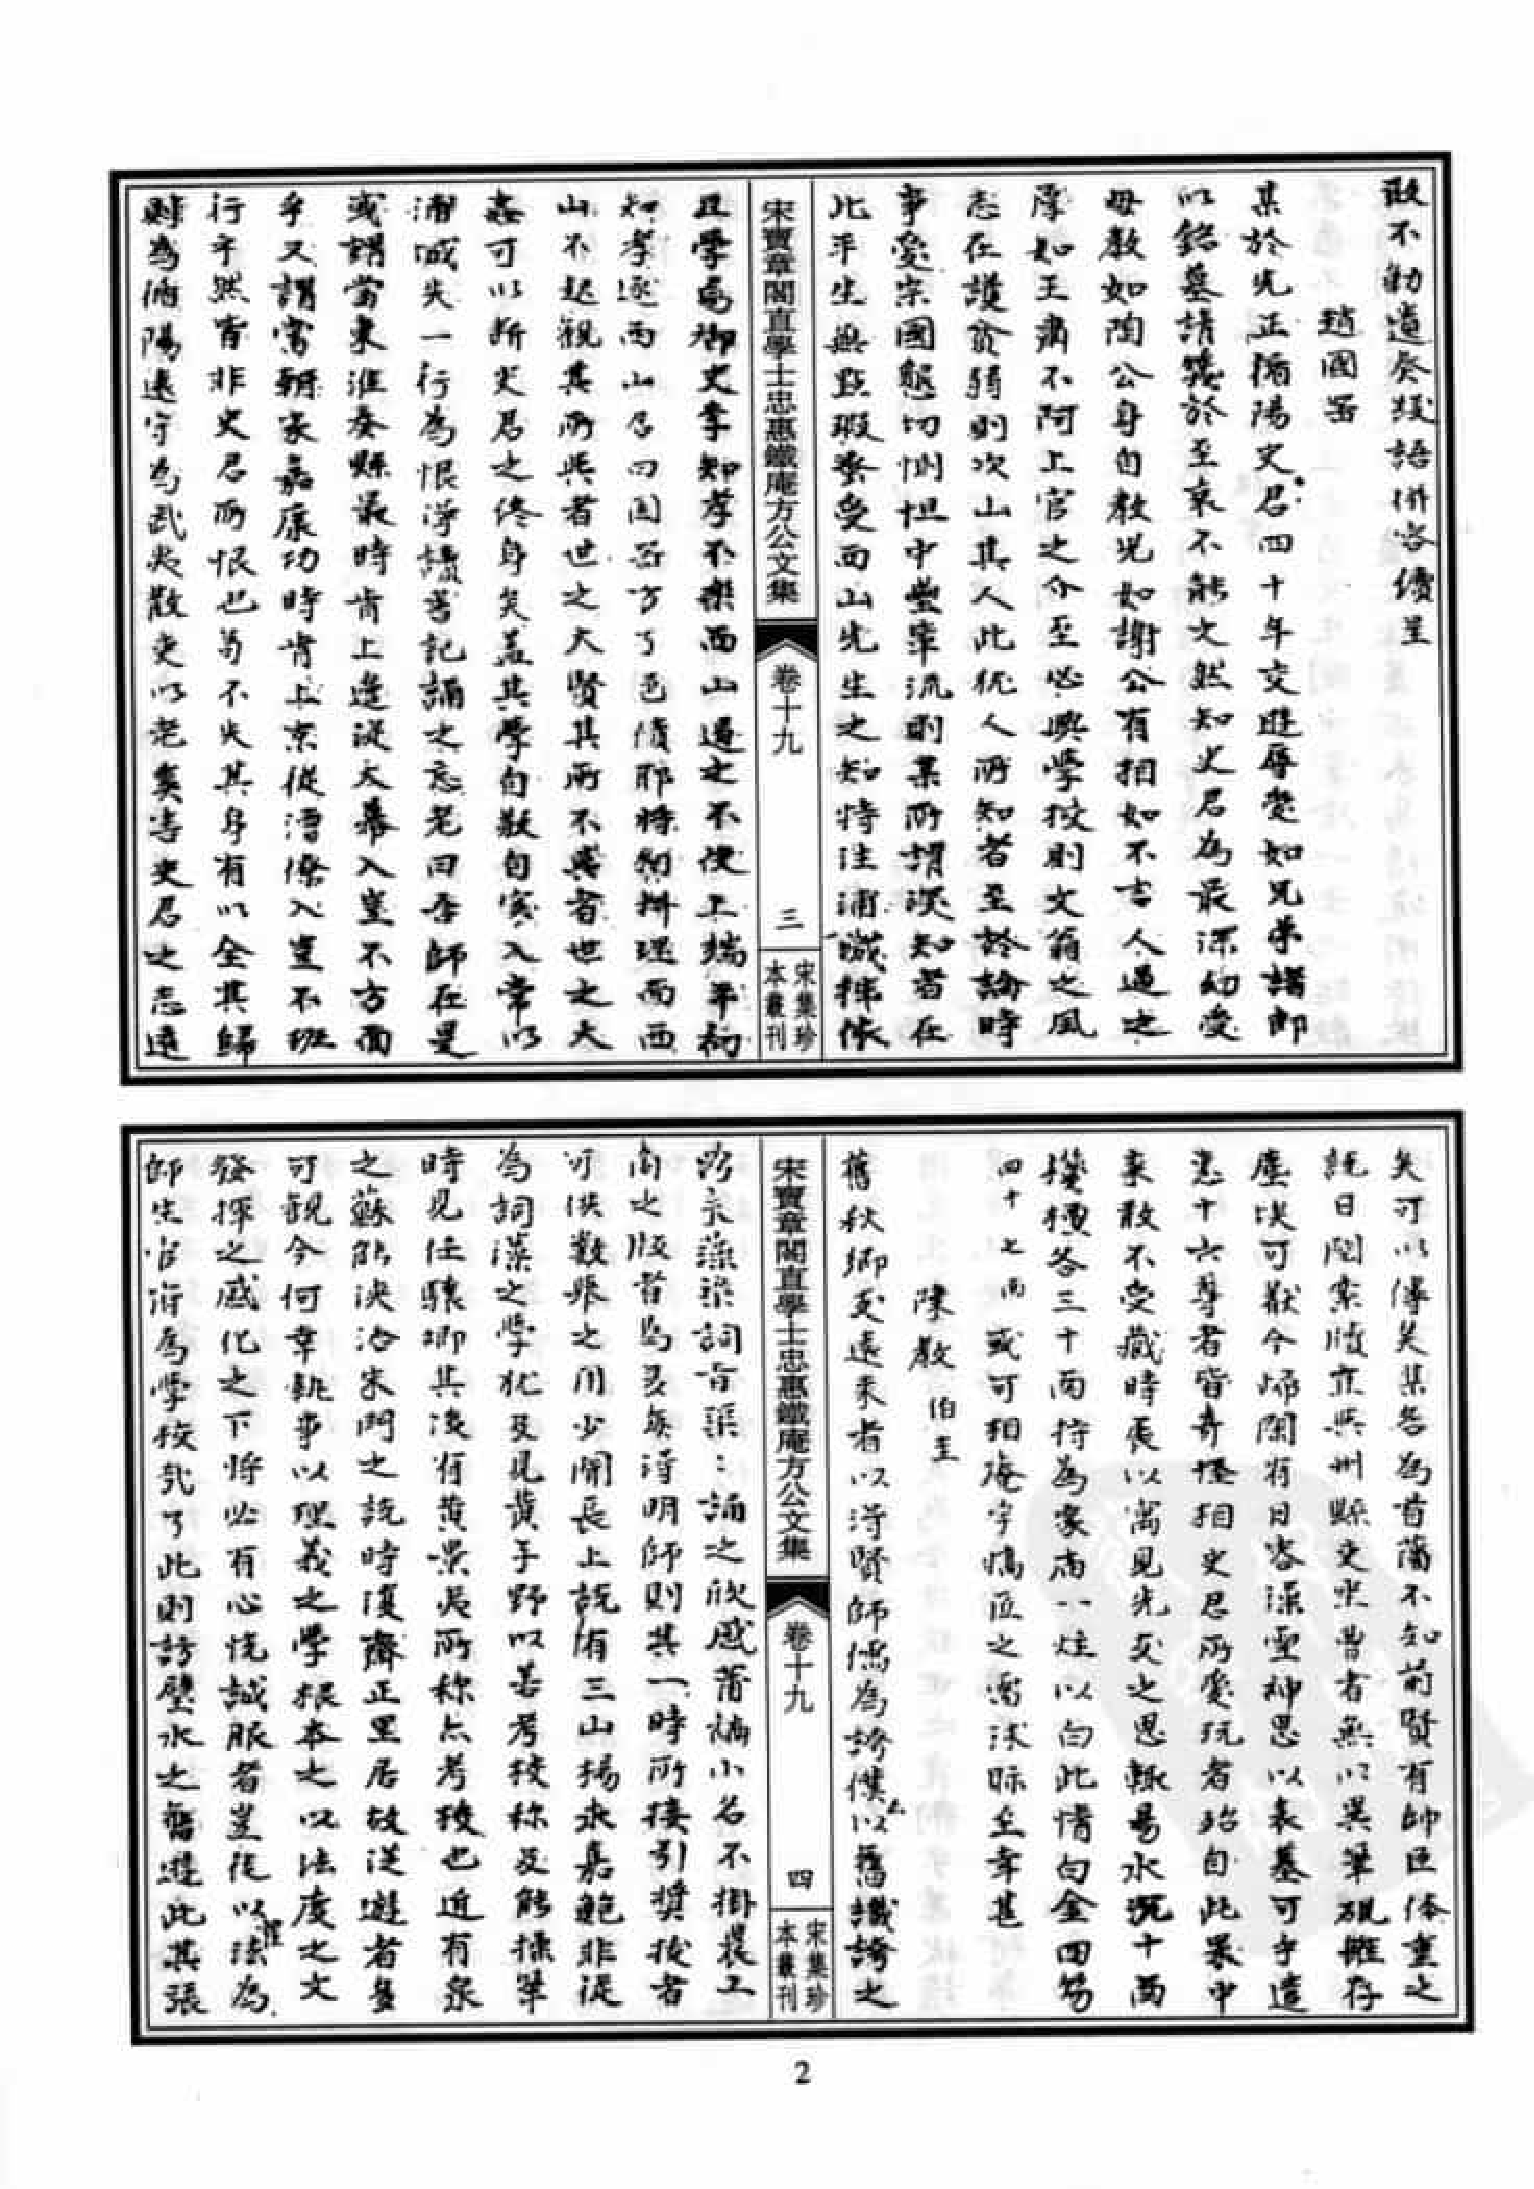 敢不勤遣癸緘語併容續呈
趙國器
某於先正循陽史君四十年交遊辱愛如兄弟諸郎
以銘墓請義於至哀不能文然知史君為最深幼受
母教如陶公身自教兄如謝公有相如不言人過之
厚如王肅不阿上官之介至必興學校則文翁之風
志在護貧弱則次山其人此猶人所知者至於論時
事愛宗國懇切惻怛中壘輩流則某所謂深知者在
此平生無點瑕蚤受西山先生之知特注浦城拜依
且學焉御史李知孝不樂西山過之不使上端平初
知孝逐西山召曰國器方了邑債耶將初辨理而西
山不起觀其所與者世之大賢其所不與者世之大
姦可以斷史君之終身矣蓋其學自敬自實入常以
浦城失一行為恨淳讀書記誦之忘老曰吾師在是
或謂當東淮麥縣最時肯上逢從大幕入豈不方面
乎又謂當朝家嘉康功時肯上京從漕僚入豈不班
行乎然皆非史君所恨也苟不失其身有以全其歸
則為循陽遠守為武夷散吏以老奚害史君之志遠
宋寶章閣直學士忠惠鐵庵方公文集
卷十九
三
宋集珍
本叢刊
矣可以傳矣某咎為首蒲不知前賢有師臣体重之
說日閱案牘旅與州縣吏坐曹者無以異筆硯雖存
塵埃可厭今歸閑有日容深靈神思以表墓可乎遣
惠十六尊者皆奇怪相史君所愛玩者殆自此累中
來敢不受藏時張以寓見先友之思報易水沉十兩
機檀各三十兩持為家而一炷以白此情白金四笏
四十七兩或可相庵宇犒匠之需沫眎至幸甚
陳教 伯圭
舊秋鄉友遠來者以得賢師儒為誇僕以舊識誇之
宋寶章閣直學士忠惠鐵庵方公文集
卷十九
四
宋集珍
本叢刊
洛示藻染詞旨渠:誦之欣感莆橘小名不掛農工
商之版昔為吏無得明師則其一時所接引獎拔者
可供數幣之用少閑長上說有三山楊永嘉鮑非從
為詞藻之學猶及見黃子野以若考校称及能操筆
時見任驥卿其後有黃景虎所称六考校也近有泉
之蘇能浹洽朱門之說時復齋正里居故從遊者多
可觀今何幸執事以理義之學根本之以法度之文
發揮之感化之下將必有心悅誠服者豈徒以法為
師生官府為學校哉了此則訪璧水之舊遊此其張
2